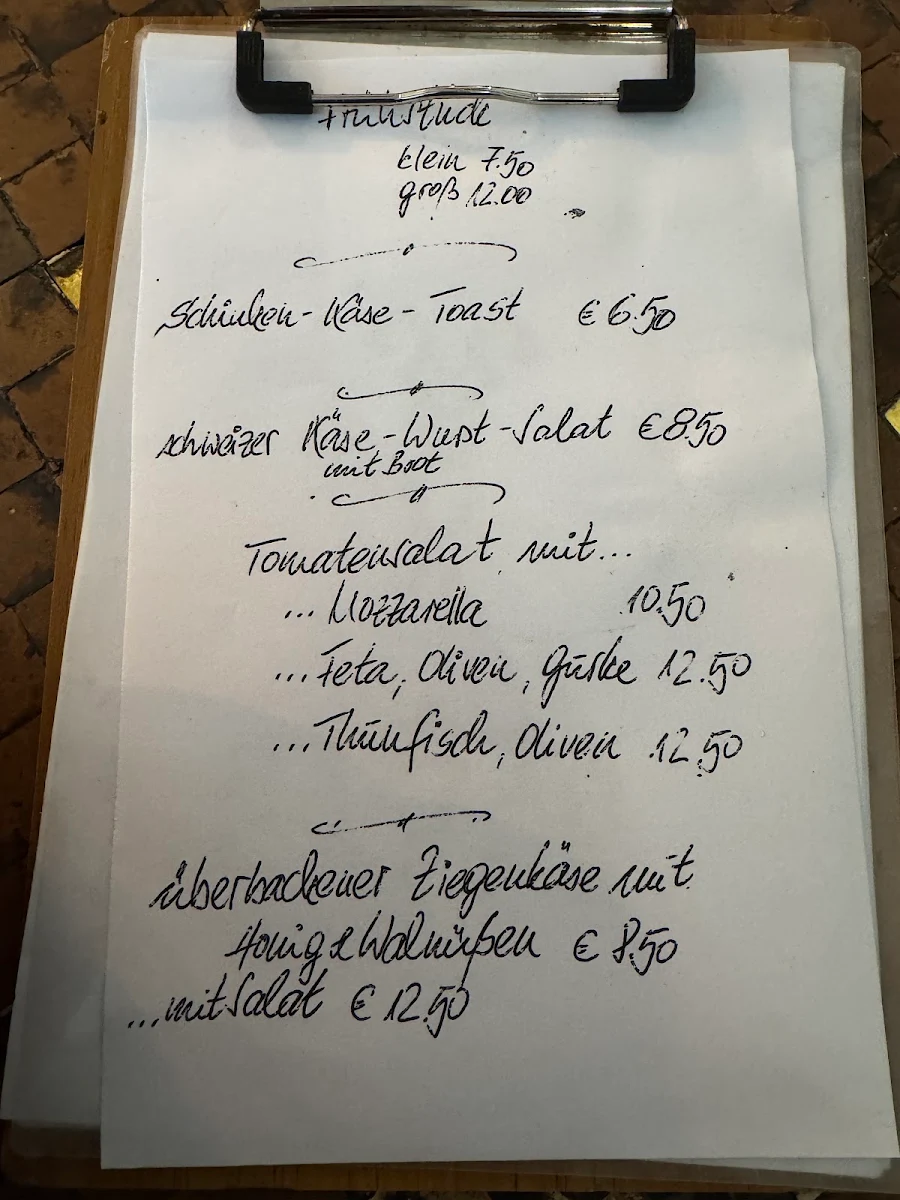 Frühstück
klein 7.50
groß 12.00
Schinken-Käse-Toast € 6.50
schweizer Käse-Wurst-Salat € 8.50
mit Brot
Tomatensalat mit...
... Mozzarella 10.50
... Feta, Oliven, Gurke 12.50
... Thunfisch, Oliven 12.50
überbackener Ziegenkäse mit
Honig & Walnüßen € 8.50
... mit Salat € 12.50